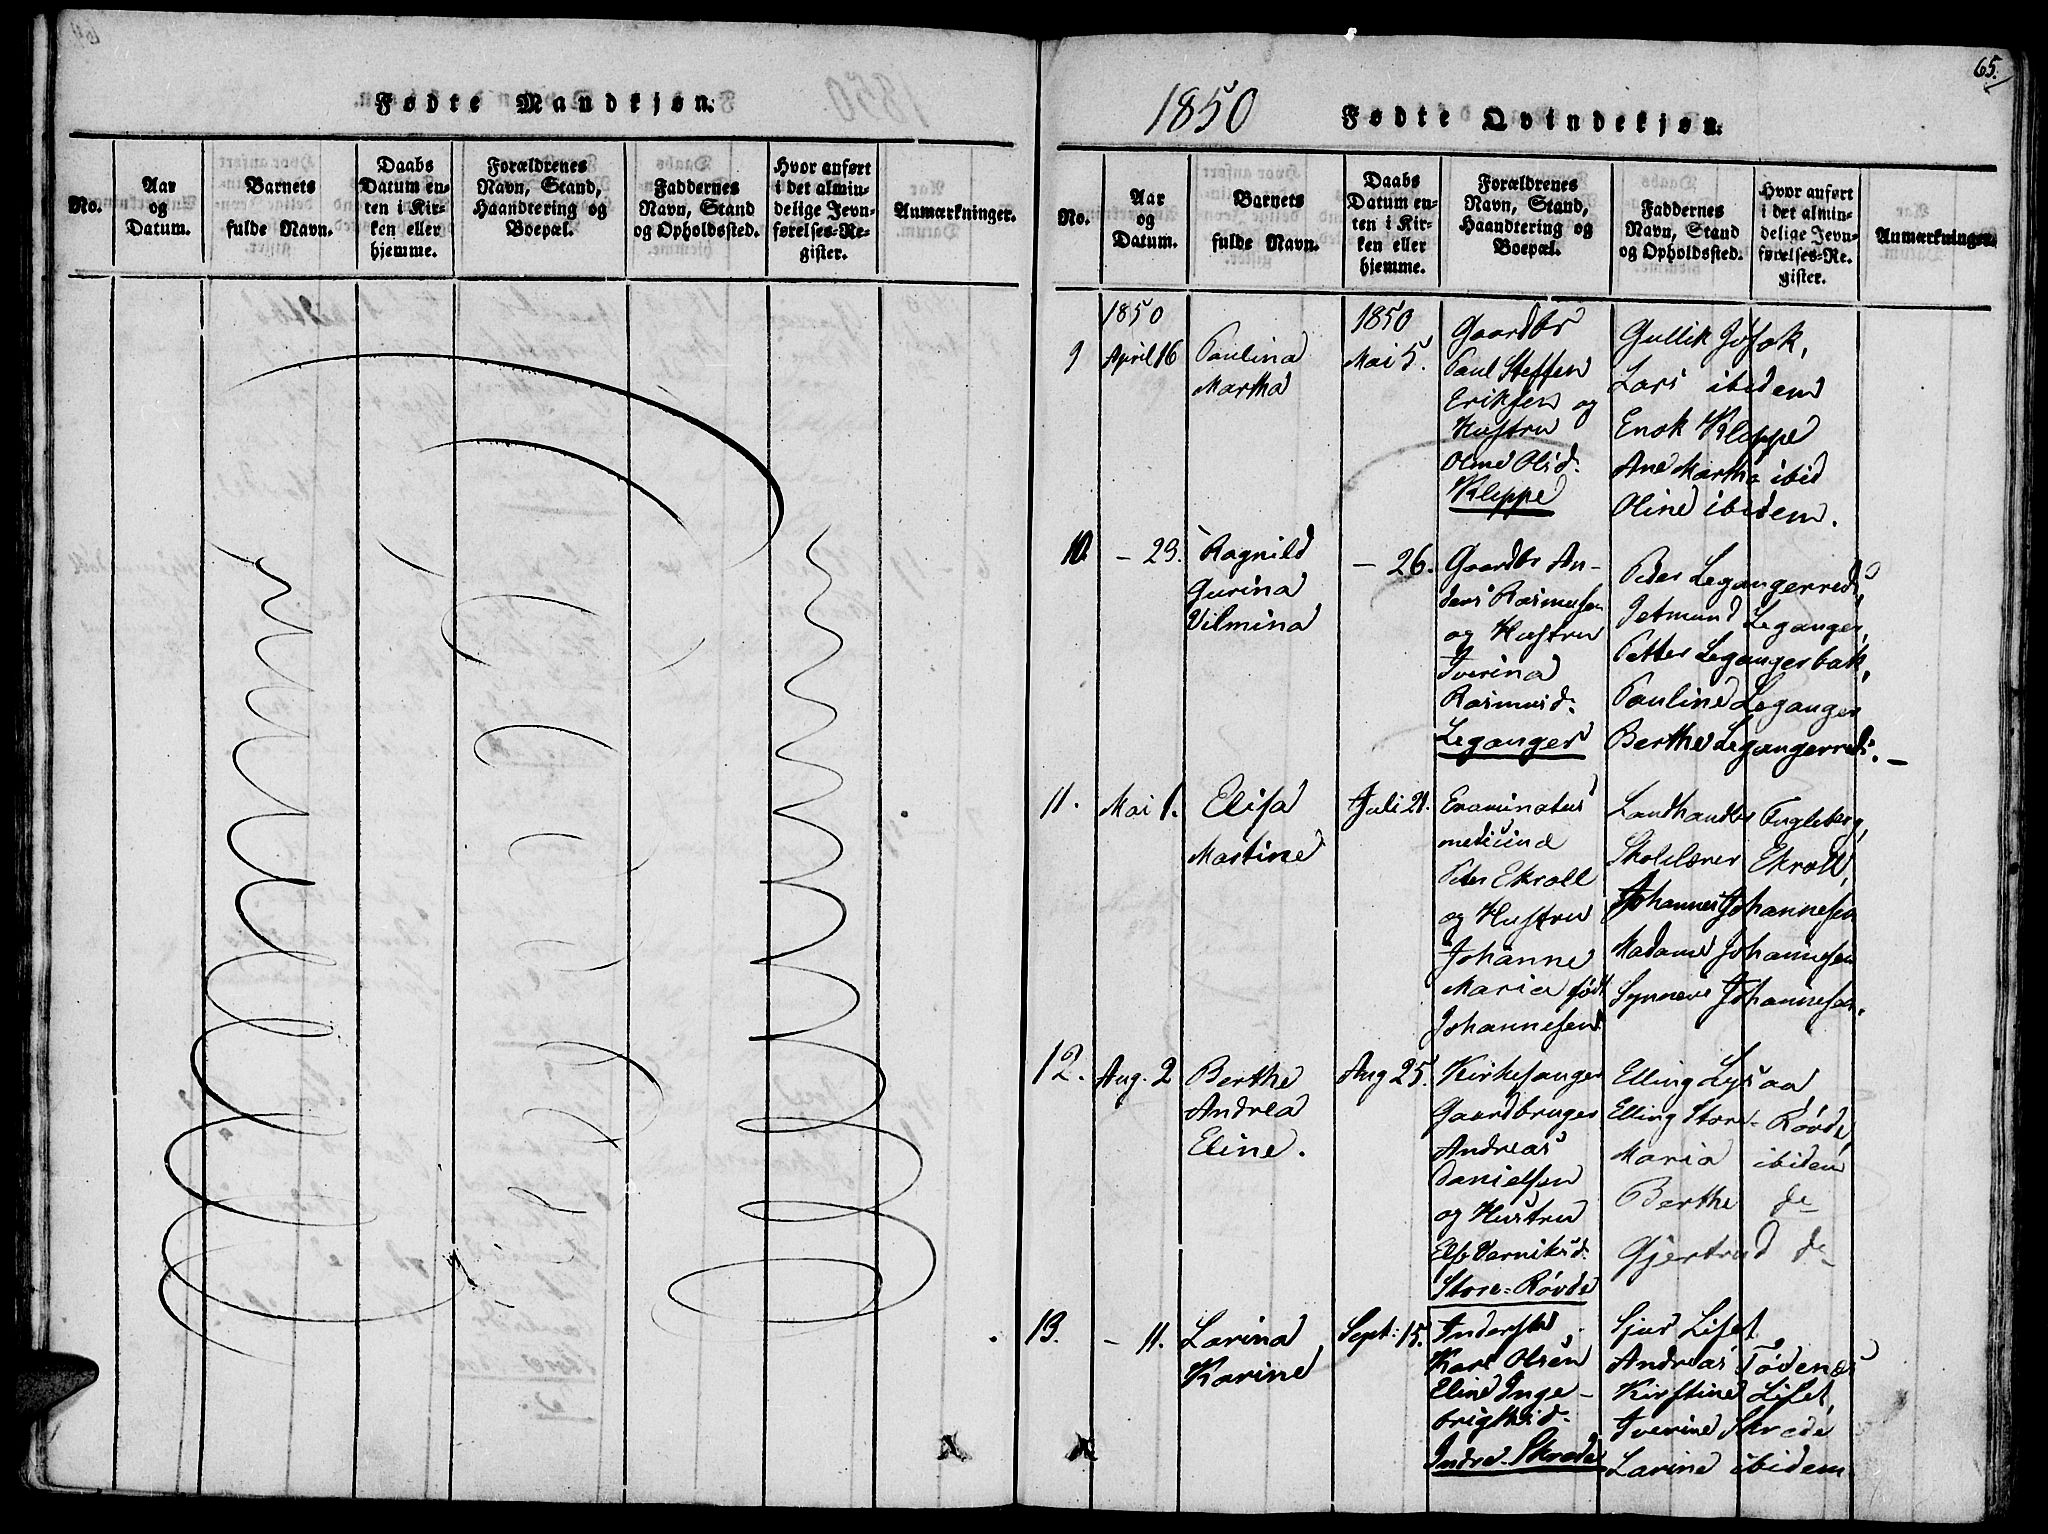 Fødte Mandkjøn.
No.
Aar
og
Datum.
Barnets
fulde Navn.
Daabs
Datum en-
ten i Kir-
ken eller
hjemme.
Forældrenes
Navn, Stand,
Haandtering og
Boepæl.
Faddernes
Navn, Stand
og Opholdssted.
Hvor anført
i det almin-
delige Jevn-
førelses-Re-
gister.
Anmærkninger.
65.
1850
Fødte Qvindekjøn.
No.
Aar
og
Datum.
Barnets
fulde Navn.
Daabs
Datum en-
ten i Kir-
ken eller
hjemme.
Forældrenes
Navn, Stand,
Haandtering og
Boepæl.
Faddernes
Navn, Stand
og Opholdssted.
Hvor anført
i det almin-
delige Jevn-
førelses-Re-
gister.
Anmærkninger.
9
1850
April 16
Paulina
Martha
1850
Mai 5.
Gaardbr
Paul Steffen
Eriksen og
Hustru
Oline Olsd.
Kleppe
Gullik
Lars ibidem
Enok Kleppe
Ane Martha ibid
Oline ibidem.
10.
- 23.
Ragnild
Gurina
Vilmina
- 26.
Gaardbr An-
ders Rasmusen
og Hustru
Iverina
Rasmusd.
Leganger
Peder Legangerreds,
Jetmund Leganger,
Petter Legangerbak,
Pauline Leganger
Berthe Legangerreds. -
11.
Mai 1.
Elisa
Martine
Juli 21.
Examinatus
medicinæ
Peter Ekroll
og Hustru
Johanne
Maria født
Johannesen
Landhandler Fugleberg,
Skolelærer Ekroll,
Johannes Johannesen
Madame Johannesen
Synneve Johannesen.
12.
Aug. 2
Berthe
Andrea
Eline.
Aug 25.
Kirkesanger
Gaardbruger
Andreas
Danielsen
og Hustru
Else
Store-Røvde
Elling Lysaa
Elling Store-Røvde,
Maria ibidem
Berthe do
Gjertrud do
13.
- 11.
Larina
Karine
Sept: 15.
Inderst
Kars Olsen
Eline Inge-
brigtsd.
Indre-Skrede
Sjur Liset
Andreas Tødenæs
Kirstine Liset,
Iverine Skrede
Larine ibidem